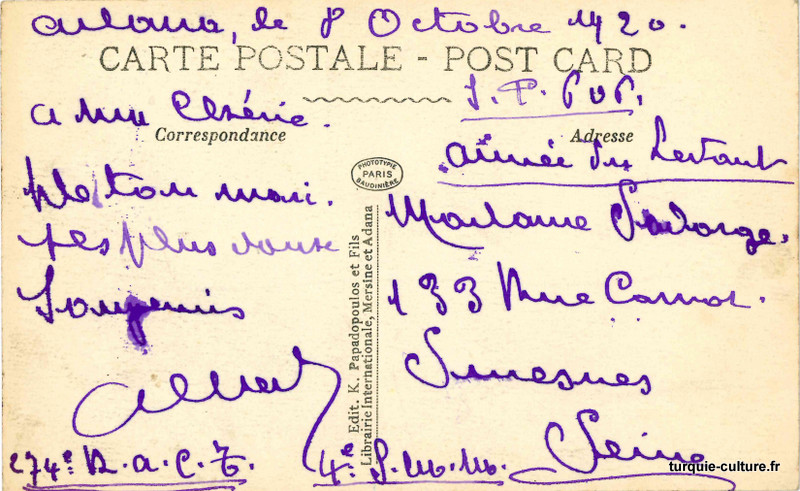 Adana, le 8 Octobre 1920.
CARTE POSTALE - POST CARD
Correspondance
a ma Chérie.
de ton mari.
tes plus doux
Souvenirs
Albert
274e R.A.C.T. 4e S.M.M.
PHOTOTYPIE
PARIS
BAUDINIÈRE
Edit. K. Papadopoulos et Fils
Librairie Internationale, Mersine et Adana
Adresse
S.P. 606.
Armée du Levant
Madame
133 Rue Carnot.
Suresnes
Seine
turquie-culture.fr